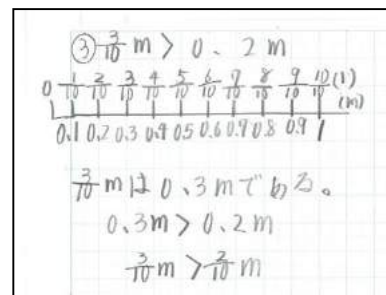 ③ 3/10 m > 0.2m
0 1/10 2/10 3/10 4/10 5/10 6/10 7/10 8/10 9/10 10/10 (1)
(m)
0.1 0.2 0.3 0.4 0.5 0.6 0.7 0.8 0.9 1
3/10 mは0.3mである。
0.3m > 0.2m
3/10 m > 2/10 m